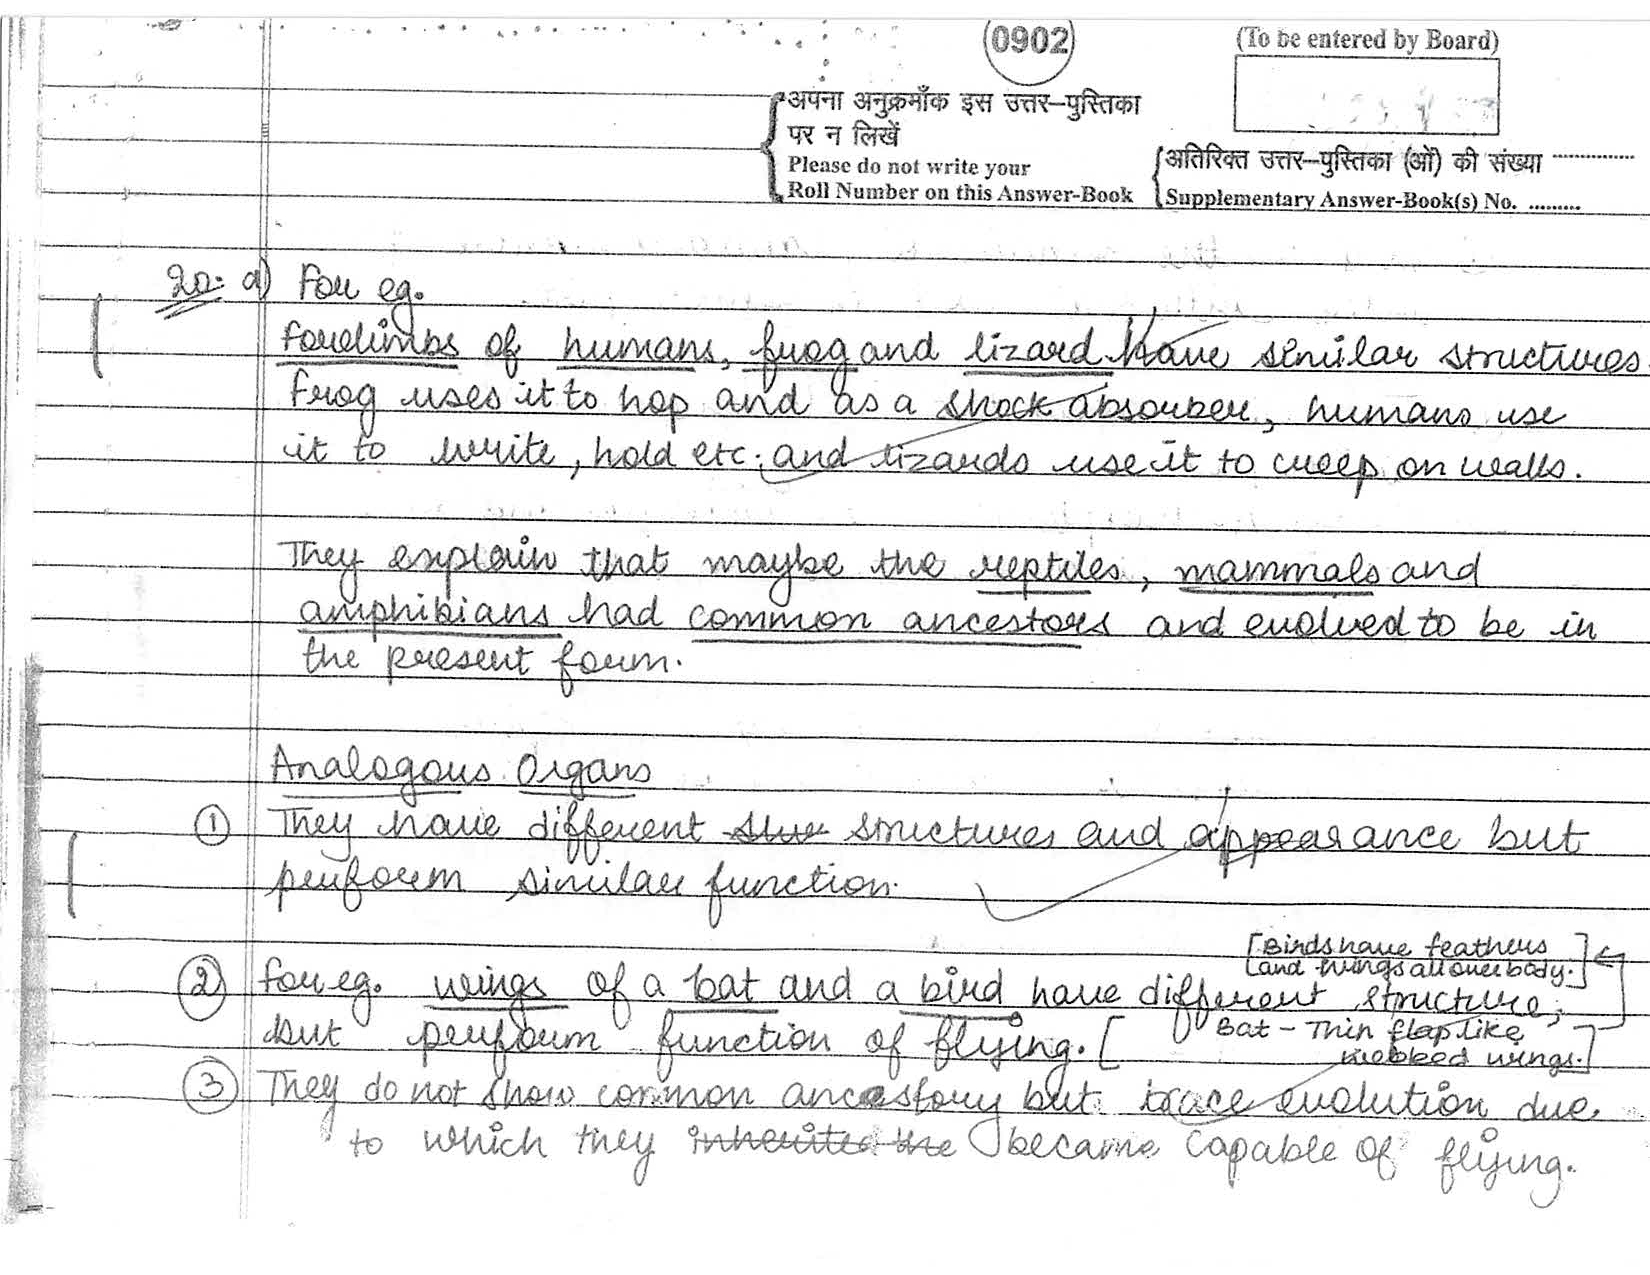 0902
(To be entered by Board)
अपना अनुक्रमाँक इस उत्तर–पुस्तिका
पर न लिखें
Please do not write your
Roll Number on this Answer-Book
अतिरिक्त उत्तर–पुस्तिका (ओं) की संख्या ..............
Supplementary Answer-Book(s) No. .........
20. a) For eg.
forelimbs of humans, frog and lizard have similar structures.
frog uses it to hop and as a shock absorber, humans use
it to write, hold etc. and lizards use it to creep on walls.
They explain that maybe the reptiles, mammals and
amphibians had common ancestors and evolved to be in
the present form.
Analogous Organs
① They have different structures and appearance but
perform similar function.
[Birds have feathers
and wings all over body.]
② for eg. wings of a bat and a bird have different structure,
but perform function of flying. [Bat - Thin flap like
webbed wings.]
③ They do not show common ancestory but trace evolution due
to which they inherited the became capable of flying.